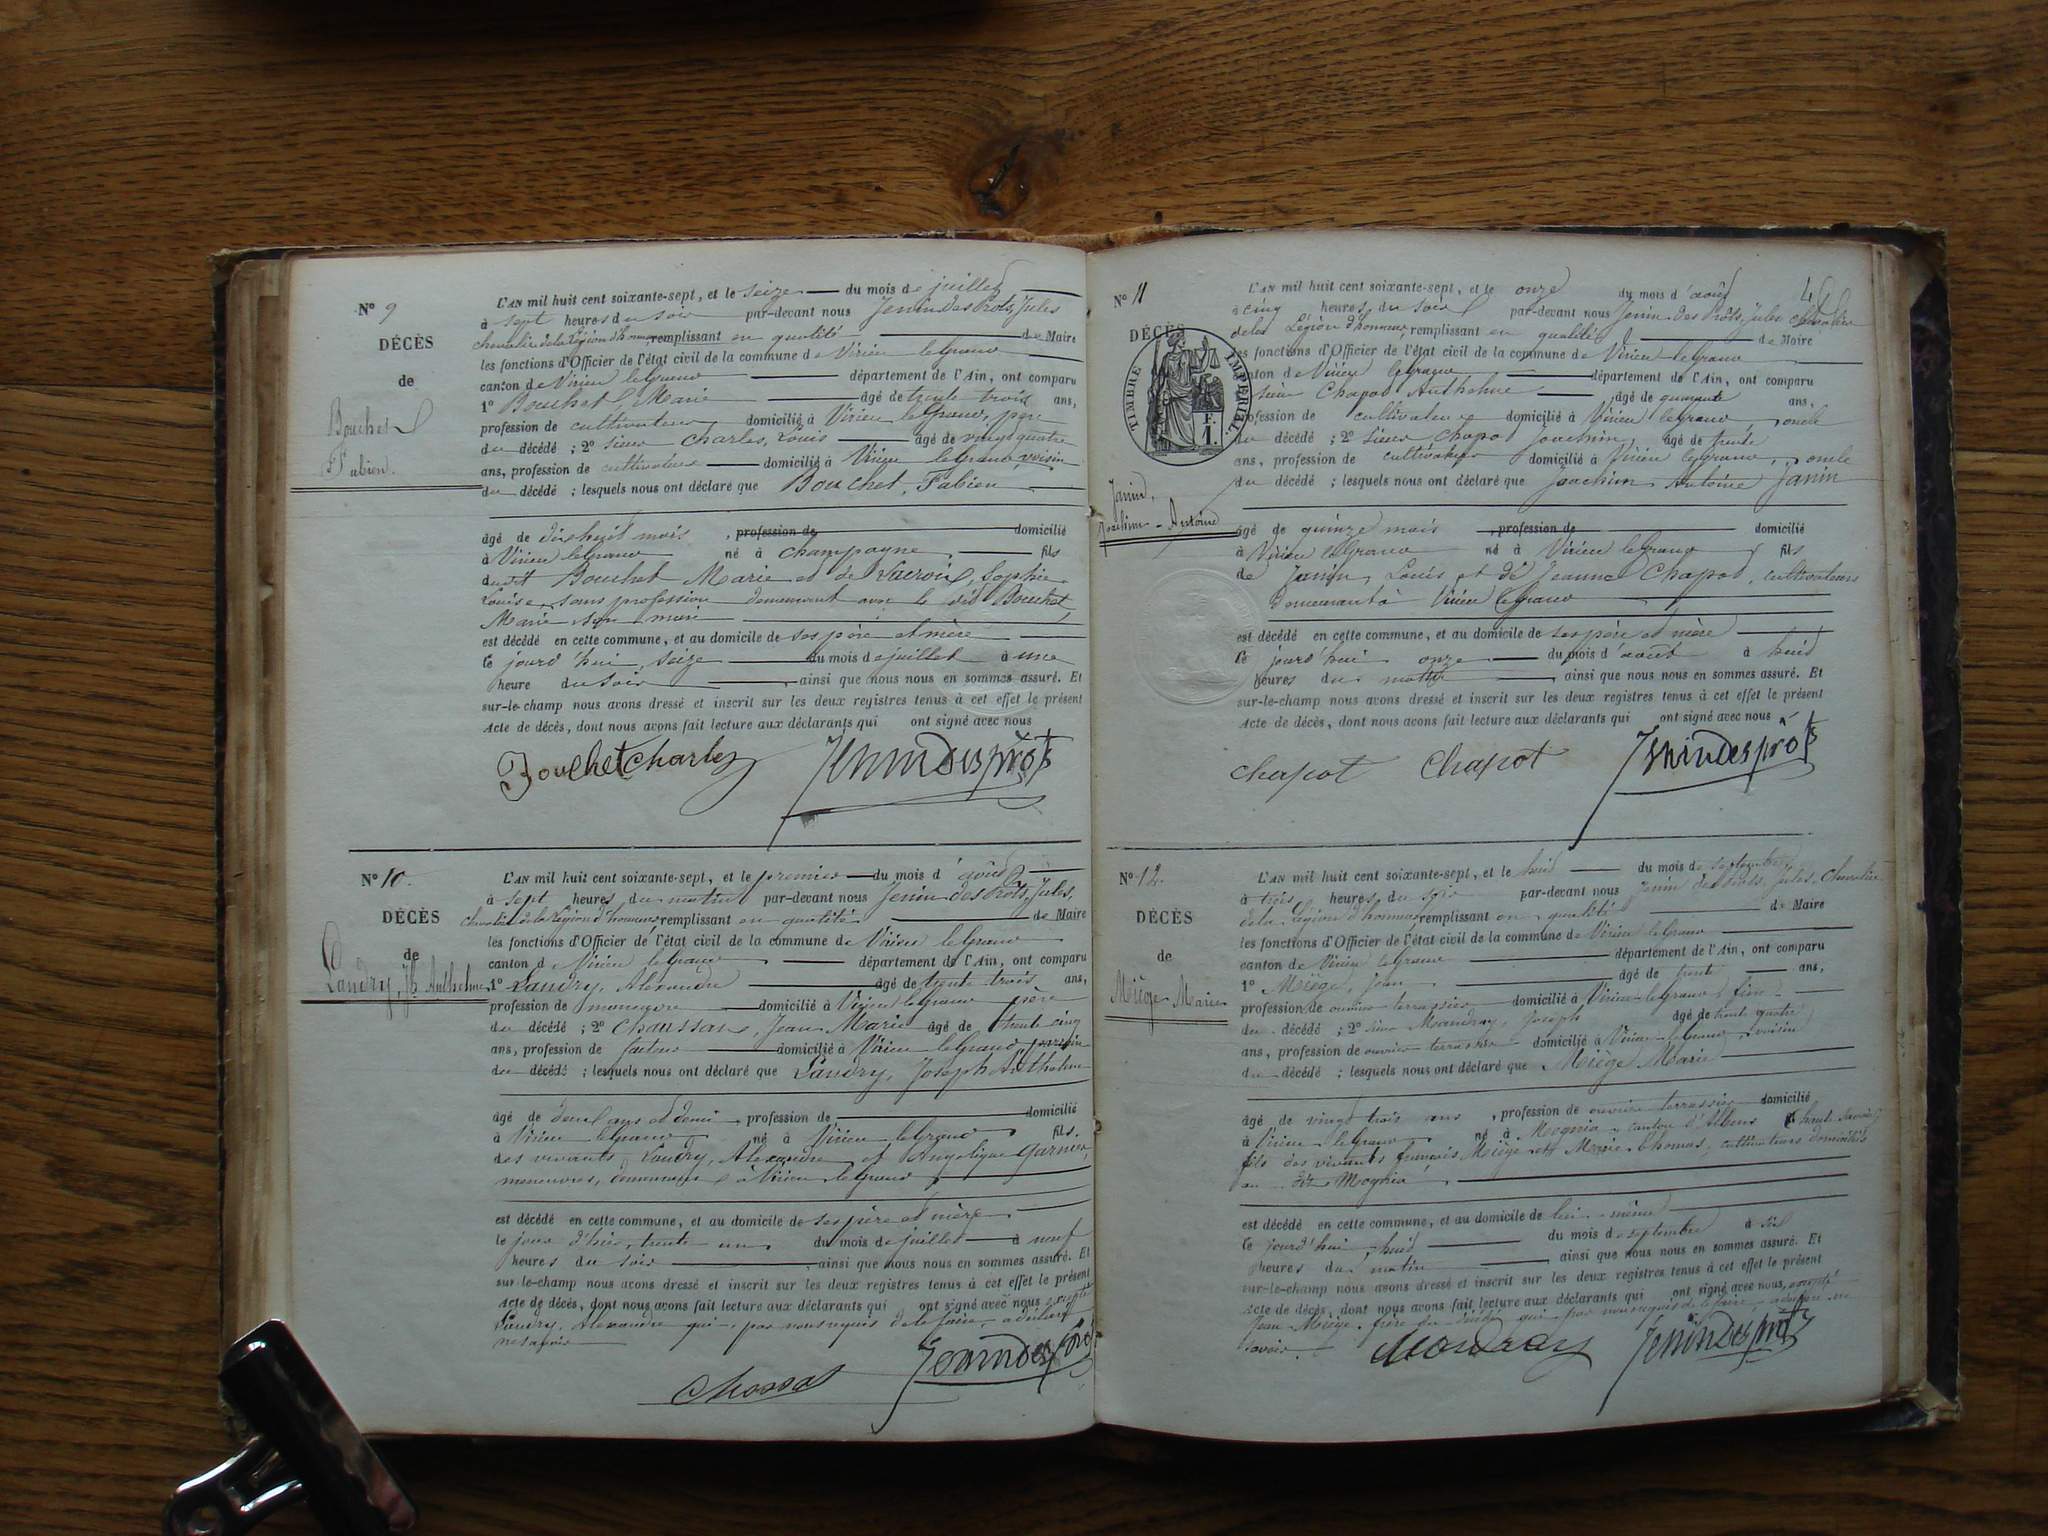 N° 9
DÉCÈS
de
Bouchet
Fabien.
L'AN mil huit cent soixante-sept, et le seize du mois de juillet
à sept heures du soir par-devant nous Jenin des Prôts, Jules
chevalier de la Légion d'honneur remplissant en qualité de Maire
les fonctions d'Officier de l'état civil de la commune de Virieu le Grand
canton de Virieu le Grand département de l'Ain, ont comparu
1° Bouchet Marie âgé de trente trois ans,
profession de cultivateur domicilié à Virieu le Grand, père
du décédé ; 2° sieur Charles, Louis âgé de vingt quatre
ans, profession de cultivateur domicilié à Virieu le Grand voisin
du décédé ; lesquels nous ont déclaré que Bouchet, Fabien
âgé de dix huit mois , profession de domicilié
à Virieu le Grand né à Champagne, fils
dudit Bouchet Marie et de Lacroix, Sophie
Louise, sans profession demeurant avec le dit Bouchet
Marie son mari
est décédé en cette commune, et au domicile de ses père et mère
le jourd'hui, seize du mois de juillet à une
heure du soir , ainsi que nous nous en sommes assuré. Et
sur-le-champ nous avons dressé et inscrit sur les deux registres tenus à cet effet le présent
Acte de décès, dont nous avons fait lecture aux déclarants qui ont signé avec nous
Bouchet Charles Jenindesprôts
N° 10.
DÉCÈS
de
Landry, Jh Anthelme
L'AN mil huit cent soixante-sept, et le premier du mois d'août
à sept heures du matin par-devant nous Jenin des Prôts, Jules,
chevalier de la Légion d'honneur remplissant en qualité de Maire
les fonctions d'Officier de l'état civil de la commune de Virieu le Grand
canton de Virieu le Grand département de l'Ain, ont comparu
1° Landry, Alexandre âgé de trente trois ans,
profession de manœuvre domicilié à Virieu le Grand père
du décédé ; 2° Jean Marie âgé de trente cinq
ans, profession de facteur domicilié à Virieu le Grand, voisin
du décédé ; lesquels nous ont déclaré que Landry, Joseph Anthelme
âgé de deux ans et demi , profession de domicilié
à Virieu le Grand né à Virieu le Grand fils
des vivants Landry, Alexandre et Angélique Garnier,
manœuvres, demeurant à Virieu le Grand
est décédé en cette commune, et au domicile de ses père et mère
le jour d'hier, trente un du mois de juillet à neuf
heures du soir , ainsi que nous nous en sommes assuré. Et
sur-le-champ nous avons dressé et inscrit sur les deux registres tenus à cet effet le présent
Acte de décès, dont nous avons fait lecture aux déclarants qui ont signé avec nous excepté
Landry, Alexandre qui, par nous requis de le faire, a déclaré
ne savoir
Chossat Jenindesprôts
48
N° 11
DÉCÈS
TIMBRE IMPÉRIAL
F.
1.
Janin,
Joachim-Antoine
L'AN mil huit cent soixante-sept, et le onze du mois d'août
à cinq heures du soir par-devant nous Jenin des Prôts, Jules chevalier
de la Légion d'honneur, remplissant en qualité de Maire
les fonctions d'Officier de l'état civil de la commune de Virieu le Grand
canton de Virieu le Grand département de l'Ain, ont comparu
sieur Chapot Anthelme âgé de quarante ans,
profession de cultivateur domicilié à Virieu le Grand, oncle
du décédé ; 2° sieur Chapot Joachim, âgé de trente
ans, profession de cultivateur domicilié à Virieu le Grand, oncle
du décédé ; lesquels nous ont déclaré que Joachim Antoine Janin
âgé de quinze mois , profession de domicilié
à Virieu le Grand né à Virieu le Grand fils
de Janin, Louis et de Jeanne Chapot, cultivateurs
demeurant à Virieu le Grand
est décédé en cette commune, et au domicile de ses père et mère
le jourd'hui onze du mois d'août à huit
heures du matin , ainsi que nous nous en sommes assuré. Et
sur-le-champ nous avons dressé et inscrit sur les deux registres tenus à cet effet le présent
Acte de décès, dont nous avons fait lecture aux déclarants qui ont signé avec nous
Chapot Chapot Jenindesprôts
N° 12.
DÉCÈS
de
Miège Marie
L'AN mil huit cent soixante-sept, et le huit du mois de septembre
à trois heures du soir par-devant nous Jenin des Prôts, Jules, Chevalier
de la Légion d'honneur remplissant en qualité de Maire
les fonctions d'Officier de l'état civil de la commune de Virieu le Grand
canton de Virieu le Grand département de l'Ain, ont comparu
1° Miège, Jean âgé de trente ans,
profession de ouvrier terrassier domicilié à Virieu-le-Grand, frère
du décédé ; 2° sieur Joseph âgé de trente quatre
ans, profession de ouvrier terrassier domicilié à Virieu-le-Grand, voisin
du décédé ; lesquels nous ont déclaré que Miège Marie
âgé de vingt trois ans , profession de ouvrier terrassier domicilié
à Virieu le Grand né à canton d'Albens haute Savoie
fils des vivants françois Miège et Marie Thomas, cultivateurs domiciliés
au dit
est décédé en cette commune, et au domicile de lui-même
le jourd'hui, huit du mois de septembre à six
heures du matin , ainsi que nous nous en sommes assuré. Et
sur-le-champ nous avons dressé et inscrit sur les deux registres tenus à cet effet le présent
Acte de décès, dont nous avons fait lecture aux déclarants qui ont signé avec nous, excepté
Jean Miège, frère du décédé qui, par nous requis de le faire, a déclaré ne
savoir.
Jenindesprôts